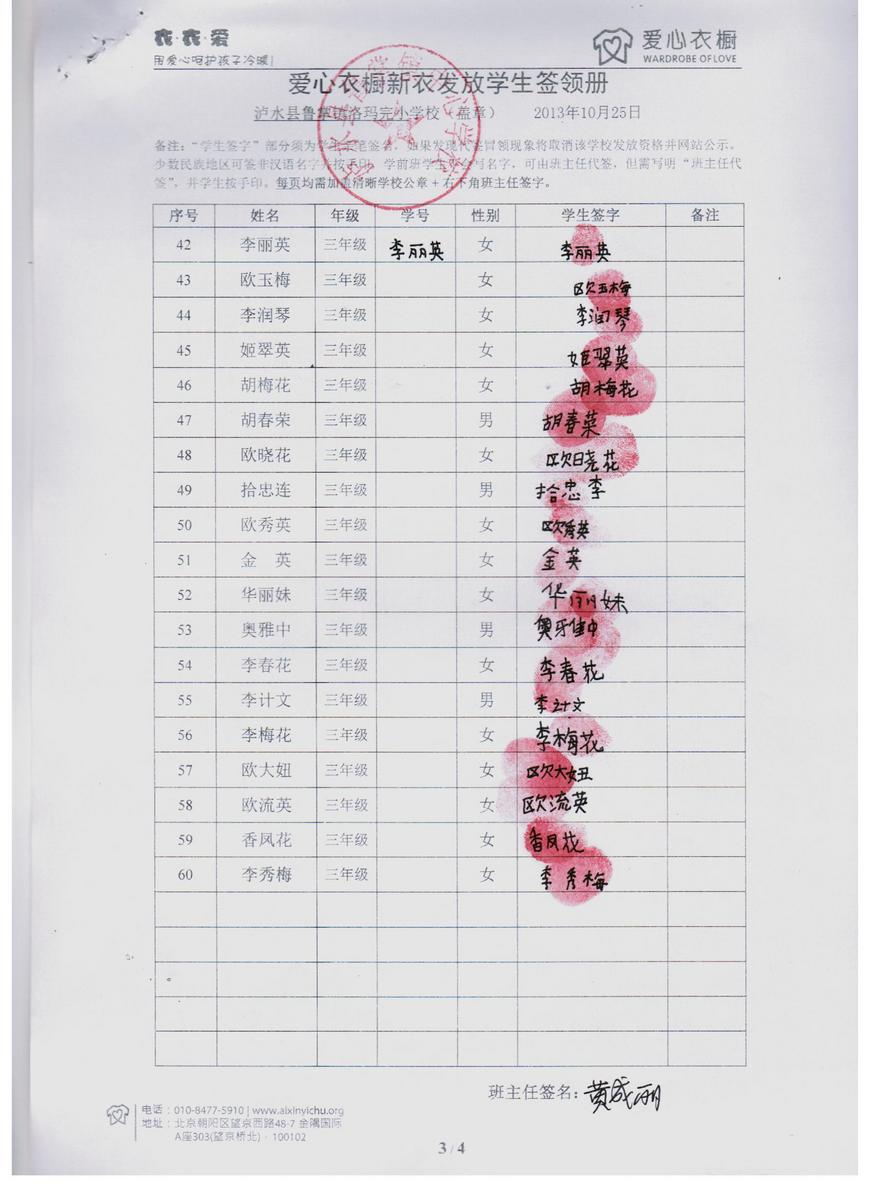 衣·衣·爱
用爱心呵护孩子冷暖!
爱心衣橱
WARDROBE OF LOVE
爱心衣橱新衣发放学生签领册
泸水县鲁掌镇洛玛完小学校（盖章） 2013年10月25日
备注：“学生签字”部分须为学生亲笔签名，如果发现代签冒领现象将取消该学校发放资格并网站公示。
少数民族地区可签非汉语名字并按手印。学前班学生不会写名字，可由班主任代签，但需写明“班主任代
签”，并学生按手印。每页均需加盖清晰学校公章+右下角班主任签字。
序号 姓名 年级 学号 性别 学生签字 备注
42 李丽英 三年级 李丽英 女 李丽英
43 欧玉梅 三年级 女 欧玉梅
44 李润琴 三年级 女 李润琴
45 姬翠英 三年级 女 姬翠英
46 胡梅花 三年级 女 胡梅花
47 胡春荣 三年级 男 胡春菜
48 欧晓花 三年级 女 欧晓花
49 拾忠连 三年级 男 拾忠李
50 欧秀英 三年级 女 欧秀英
51 金 英 三年级 女 金英
52 华丽妹 三年级 女 华丽妹
53 奥雅中 三年级 男 奥雅中
54 李春花 三年级 女 李春花
55 李计文 三年级 男 李计文
56 李梅花 三年级 女 李梅花
57 欧大妞 三年级 女 欧大妞
58 欧流英 三年级 女 欧流英
59 香凤花 三年级 女 香凤花
60 李秀梅 三年级 女 李秀梅
班主任签名：黄成丽
电话：010-8477-5910 | www.aixinyichu.org
地址：北京朝阳区望京西路48-7 金隅国际
A座303(望京桥北)·100102
3 / 4